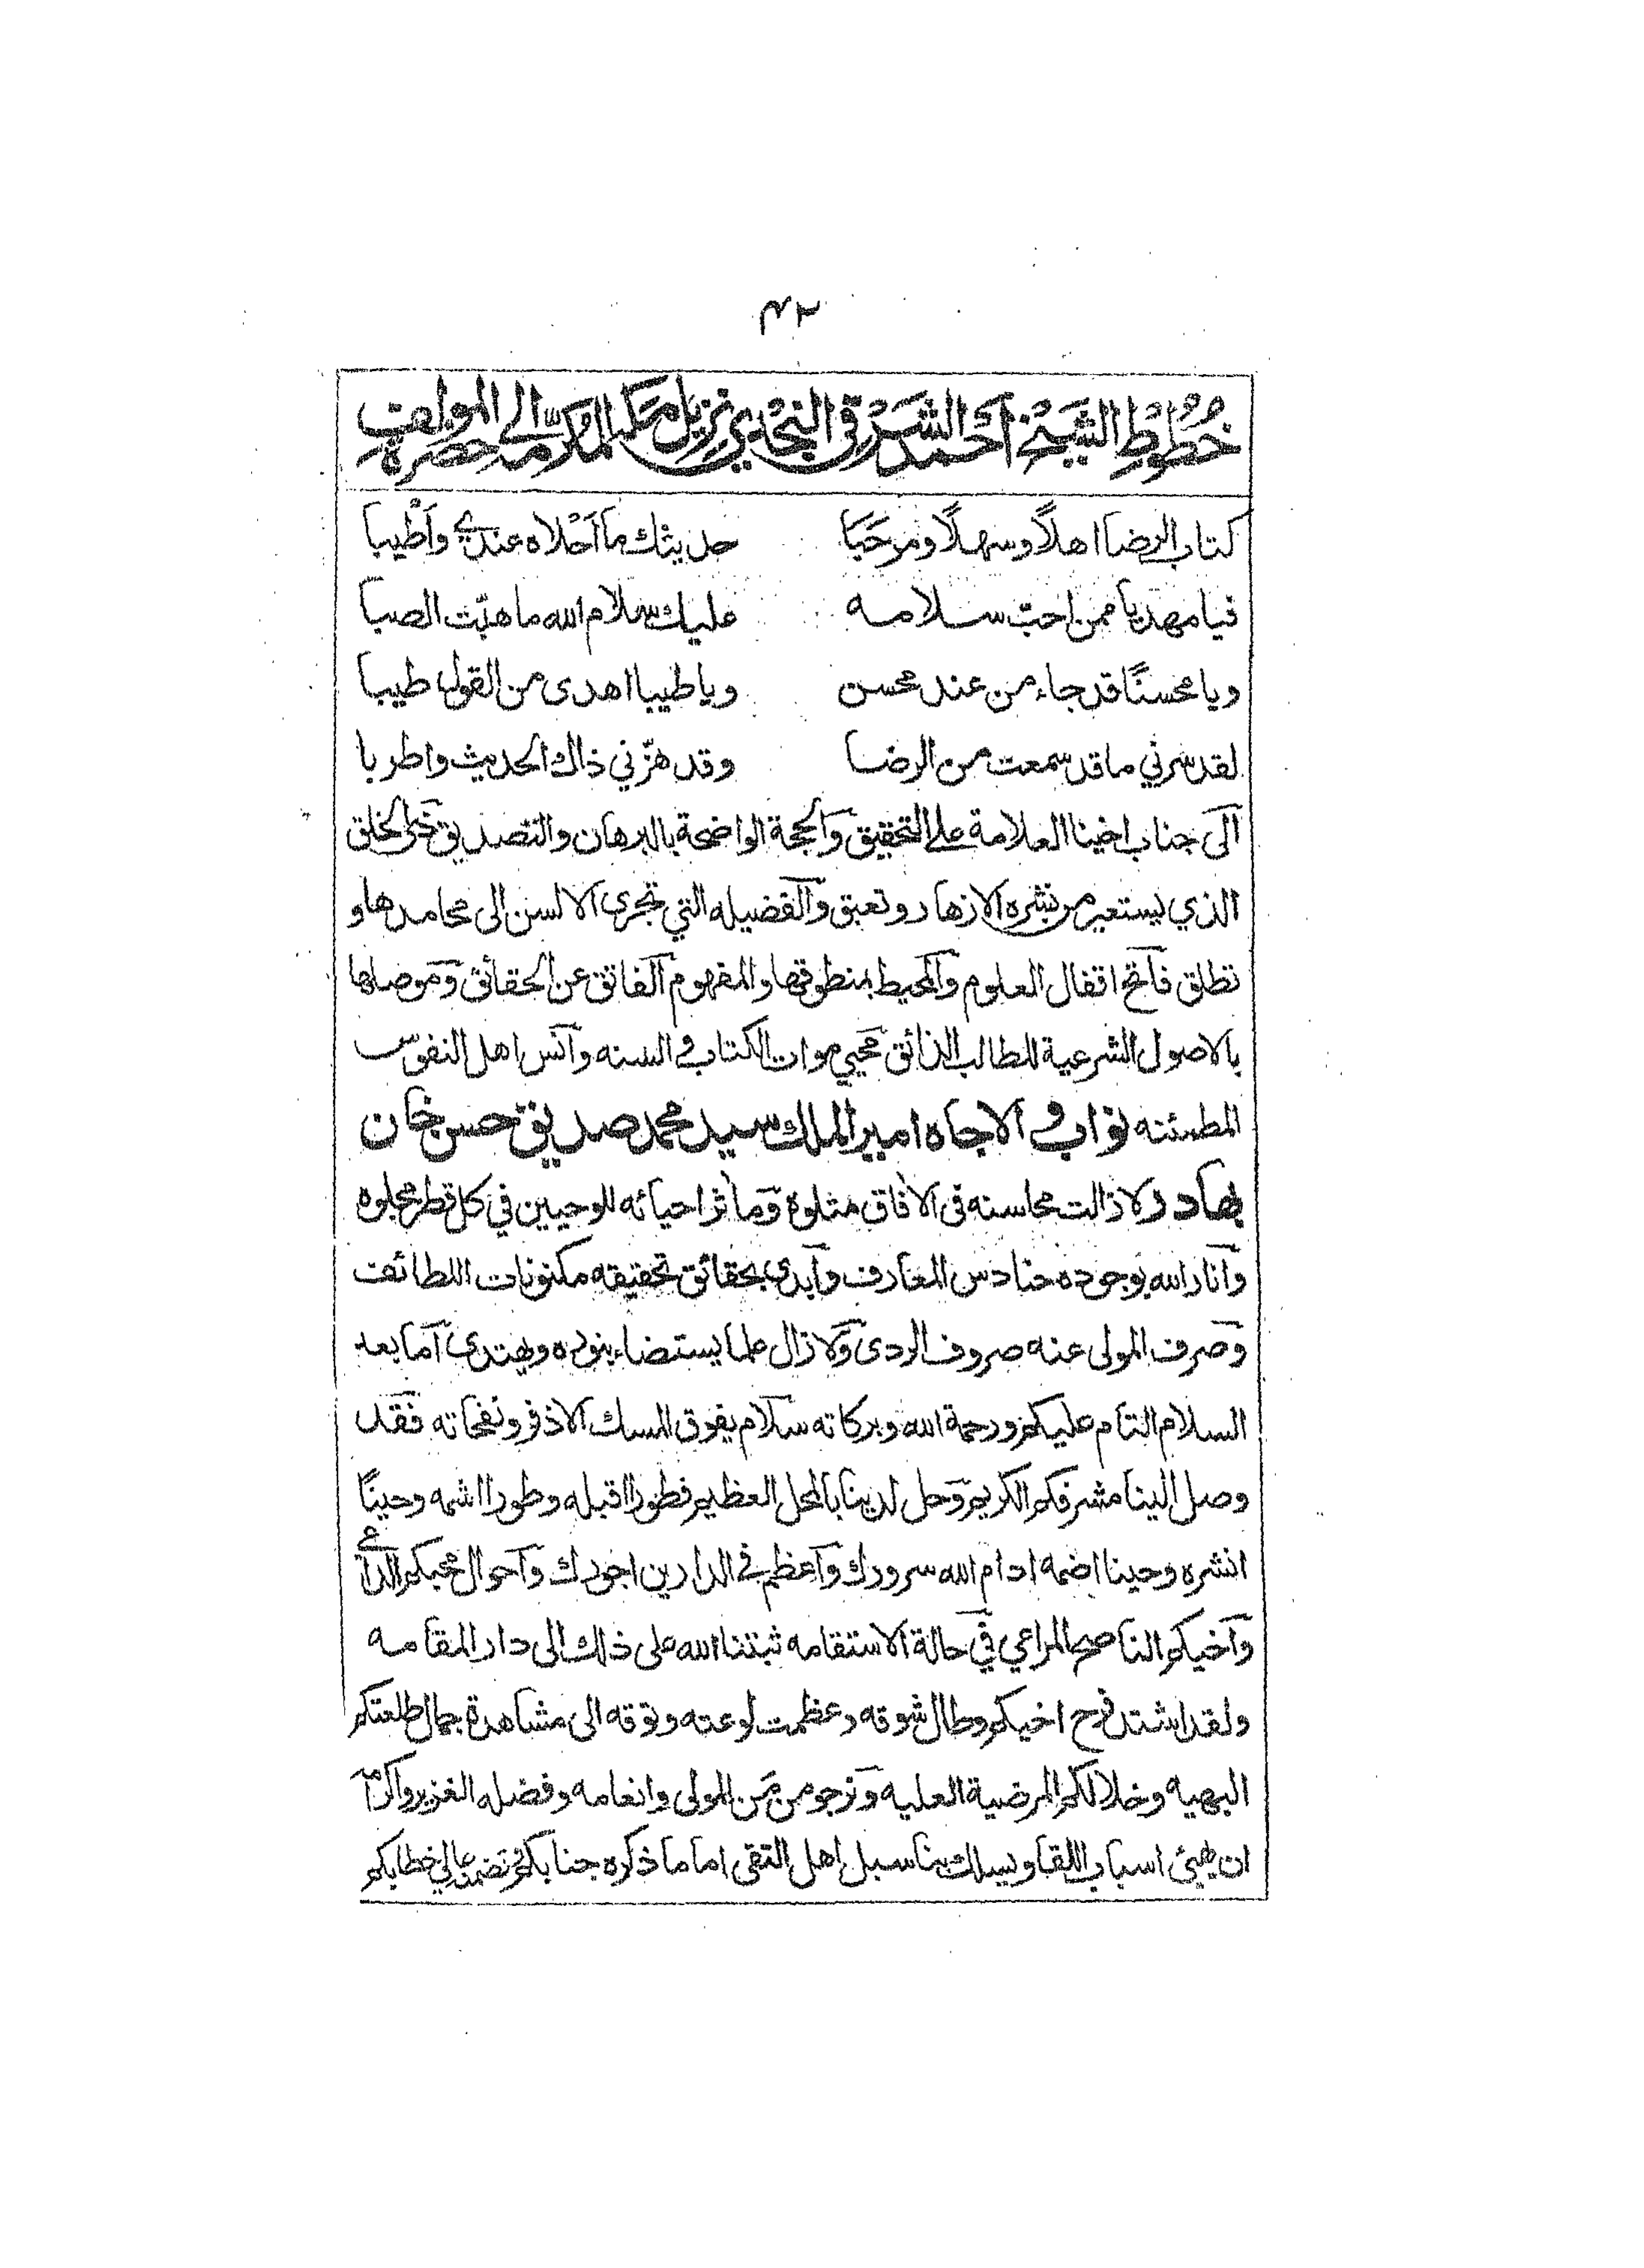 ٤٢
خُطُوْطِ الشَّيْخْ اَحْمد الشَّرْقِي النَّجْدِي نزيل مكة المكرمة الى حضرة المؤلف
كتاب الرضا اهلاً وسهلاً ومرحَبَا حديثك ما اَحْلاه عندي واَطْيبا
فيا مهديا ممن احبّ سلامه عليك سلام الله ما هبّت الصبا
ويا محسنًا قد جاء من عند محسن ويا طيبا اهدى من القول طيبا
لقد سرني ما قد سمعت من الرضا وقد هزّني ذاك الحديث واطربا
الى جناب اخينا العلامة على التحقيق والحجة الواضحة بالبرهان والتصديق ذى الخلق
الذي يستعير من نشره الازهار وتعبق والفضيله التي تجرى الالسن الى محامدها و
تطلق فاتح اقفال العلوم والمحيط بمنطوقها والمفهوم الفاتق عن الحقائق وموصلها
بالاصول الشرعية للطالب الذائق محيي موات الكتاب والسنه وآنس اهل النفوس
المطمئنه نواب والاجاه امير الملك سيد محمد صديق حسن خان
بهادر لا زالت محاسنه فى الافاق متلوة ومآثر احيائه للوحيين في كل قطر مجلوه
وانار الله بوجوده حنادس المعارف وابدى بحقائق تحقيقه مكنونات اللطائف
وصرف المولى عنه صروف الردى ولا زال علما يستضاء بنوره ويهتدى اما بعد
السلام التام عليكم ورحمة الله وبركاته سلام يفوق المسك الاذفر ونفحاته فقد
وصل الينا مشرفكم الكريم وحل لدينا بالمحل العظيم فطورا اقبله وطورا اشمه وحينًا
انشره وحينا اضمه ادام الله سرورك واعظم في الدارين اجورك واحوال محبكم الداعي
واخيكم الناصح المراعي في حالة الاستقامه ثبتنا الله على ذلك الى دار المقامه
ولقد اشتد فرح اخيكم وطال شوقه وعظمت لوعته وتوقه الى مشاهدة جمال طلعتكم
البهيه وخلالكم المرضية العليه ونرجو من مَن المولى وانعامه وفضله الغزير واكرامه
ان يهيئ اسباب اللقا ويسلك بنا سبل اهل التقى اما ما ذكره جنابكم وتضمنه عالي خطابكم